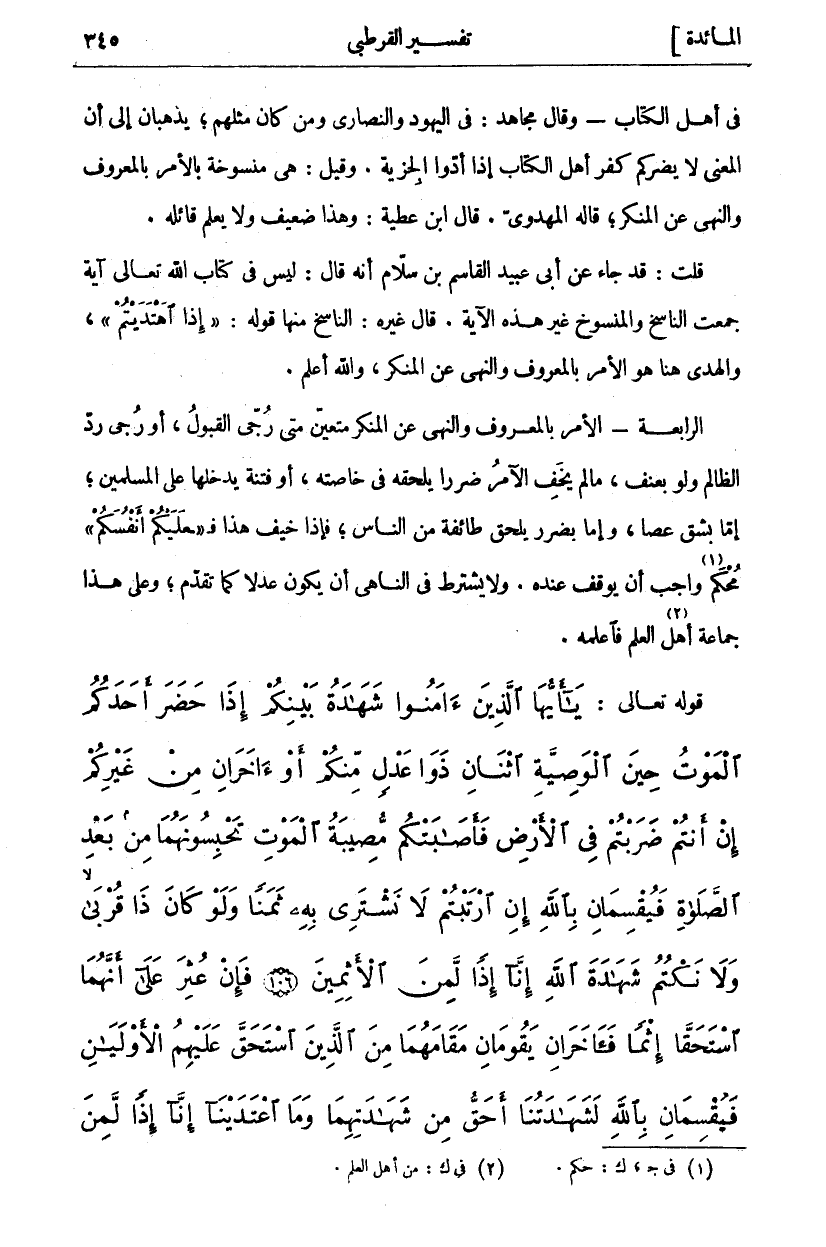 المائدة] تفسير القرطبي ٣٤٥
فى أهل الكتاب — وقال مجاهد : فى اليهود والنصارى ومن كان مثلهم ؛ يذهبان إلى أن
المعنى لا يضركم كفر أهل الكتاب إذا أدّوا الجزية . وقيل : هى منسوخة بالأمر بالمعروف
والنهى عن المنكر؛ قاله المهدوىّ . قال ابن عطية : وهذا ضعيف ولا يعلم قائله .
قلت : قد جاء عن أبى عبيد القاسم بن سلّام أنه قال : ليس فى كتاب الله تعالى آية
جمعت الناسخ والمنسوخ غير هذه الآية . قال غيره : الناسخ منها قوله : « إِذَا ٱهْتَدَيْتُمْ » ،
والهدى هنا هو الأمر بالمعروف والنهى عن المنكر ، والله أعلم .
الرابعة — الأمر بالمعروف والنهى عن المنكر متعيّن متى رُجِّى القبولُ ، أو رُجى ردّ
الظالم ولو بعنف ، مالم يخَفِ الآمرُ ضررا يلحقه فى خاصته ، أو فتنة يدخلها على المسلمين ؛
إمّا بشق عصا ، وإما بضرر يلحق طائفة من الناس ؛ فإذا خيف هذا فـ«ـعَلَيْكُمْ أَنْفُسَكُمْ»
مُحْكَم(١) واجب أن يوقف عنده . ولا يشترط فى الناهى أن يكون عدلا كما تقدّم ؛ وعلى هذا
جماعة أهل(٢) العلم فٱعلمه .
قوله تعالى : يَـٰٓأَيُّهَا ٱلَّذِينَ ءَامَنُوا شَهَـٰدَةُ بَيْنِكُمْ إِذَا حَضَرَ أَحَدَكُمُ
ٱلْمَوْتُ حِينَ ٱلْوَصِيَّةِ ٱثْنَـانِ ذَوَا عَدْلٍ مِّنكُمْ أَوْ ءَاخَرَانِ مِنْ غَيْرِكُمْ
إِنْ أَنتُمْ ضَرَبْتُمْ فِى ٱلْأَرْضِ فَأَصَـٰبَتْكُم مُّصِيبَةُ ٱلْمَوْتِ تَحْبِسُونَهُمَا مِنۢ بَعْدِ
ٱلصَّلَوٰةِ فَيُقْسِمَانِ بِٱللَّهِ إِنِ ٱرْتَبْتُمْ لَا نَشْتَرِى بِهِۦ ثَمَنًا وَلَوْ كَانَ ذَا قُرْبَىٰ ۙ
وَلَا نَكْتُمُ شَهَـٰدَةَ ٱللَّهِ إِنَّآ إِذًا لَّمِنَ ٱلْأَثِمِينَ ۝١٠٦ فَإِنْ عُثِرَ عَلَىٰٓ أَنَّهُمَا
ٱسْتَحَقَّا إِثْمًا فَـَٔاخَرَانِ يَقُومَانِ مَقَامَهُمَا مِنَ ٱلَّذِينَ ٱسْتَحَقَّ عَلَيْهِمُ ٱلْأَوْلَيَـٰنِ
فَيُقْسِمَانِ بِٱللَّهِ لَشَهَـٰدَتُنَآ أَحَقُّ مِن شَهَـٰدَتِهِمَا وَمَا ٱعْتَدَيْنَآ إِنَّآ إِذًا لَّمِنَ
(١) فى جـ ، ك : حكم . (٢) فى ك : من أهل العلم .